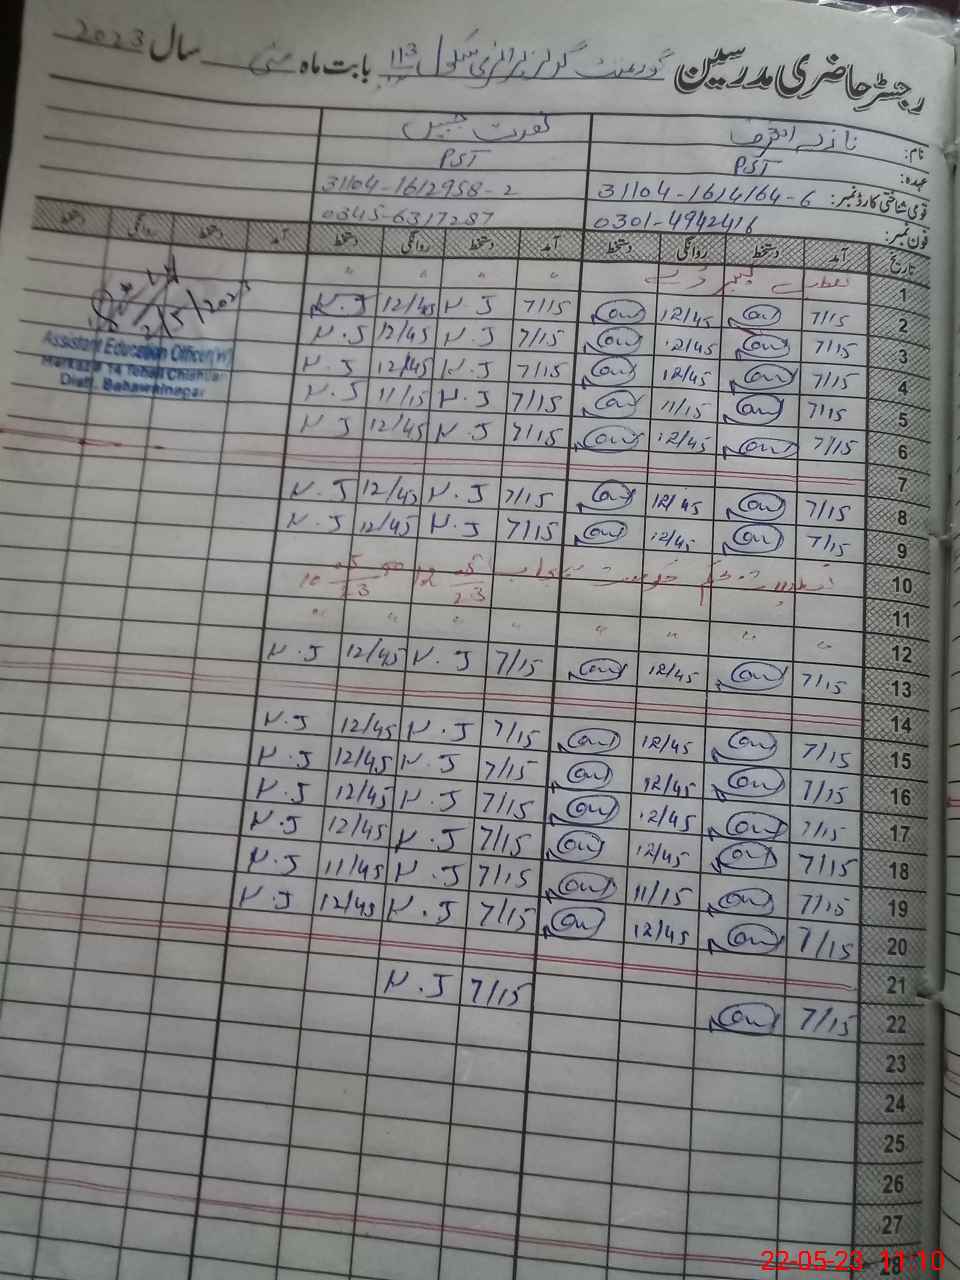 رجسٹر حاضری مدرسین گورنمنٹ گرلز پرائمری سکول 113 بابت ماہ مئی سال 2023
نام: نازیہ اشرف
عہدہ: PST PST
قومی شناختی کارڈ نمبر: 31104-1614164-6 31104-1612958-2
فون نمبر: 0301-4942416 0345-6317287
تاریخ آمد دستخط روانگی دستخط آمد دستخط روانگی دستخط آمد دستخط روانگی دستخط
1 " " " "
2 7/15 12/45 7/15 N.J 12/45 N.J
3 7/15 12/45 7/15 N.J 12/45 N.J
4 7/15 12/45 7/15 N.J 12/45 N.J
5 7/15 11/15 7/15 N.J 11/15 N.J
6 7/15 12/45 7/15 N.J 12/45 N.J
7
8 7/15 12/45 7/15 N.J 12/45 N.J
9 7/15 12/45 7/15 N.J 12/45 N.J
10
11 " " " " " " " "
12
13 7/15 12/45 7/15 N.J 12/45 N.J
14
15 7/15 12/45 7/15 N.J 12/45 N.J
16 7/15 12/45 7/15 N.J 12/45 N.J
17 7/15 12/45 7/15 N.J 12/45 N.J
18 7/15 12/45 7/15 N.J 12/45 N.J
19 7/15 11/15 7/15 N.J 11/45 N.J
20 7/15 12/45 7/15 N.J 12/45 N.J
21
22 7/15 7/15 N.J
23
24
25
26
27
28
2/5/2023
Assistant Education Officer(W)
Markaz # 14 Tehsil Chishtian
Distt. Bahawalnagar
22-05-23 11:10